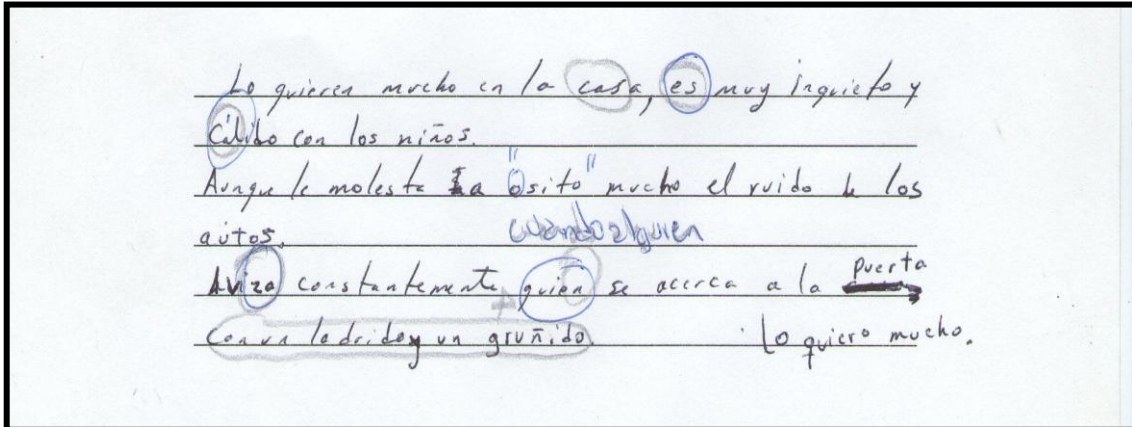 Lo quieren mucho en la casa, es muy inquieto y
Cálido con los niños.
Aunque le moleste a "osito" mucho el ruido de los
autos.
cuando alguien
Aviza constantemente quien se acerca a la puerta
Con un ladrido y un gruñido. Lo quiero mucho.